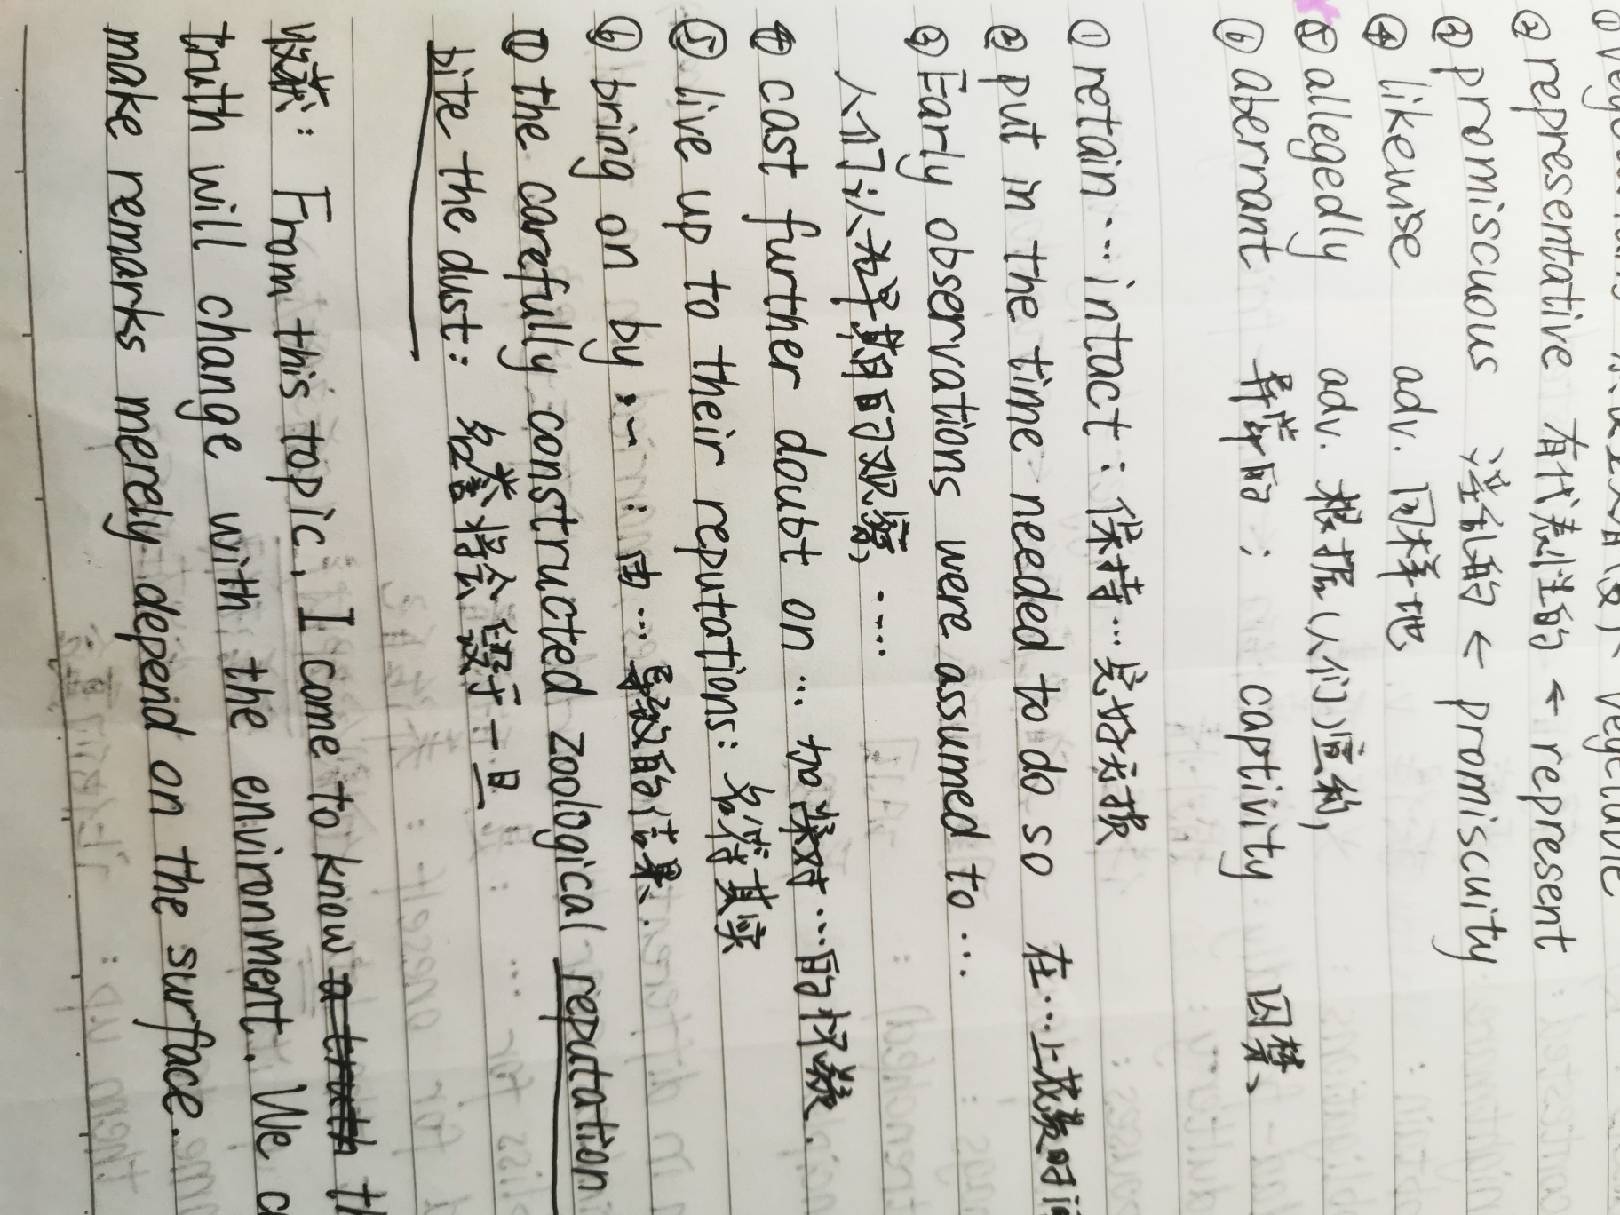 ② representative 有代表性的 ← represent
③ promiscuous 淫乱的 ← promiscuity
④ likewise adv. 同样地
⑤ allegedly adv. 根据人们宣称,
⑥ aberrant 异常的; captivity 囚禁
① retain … intact: 保持…完好无损
② put in the time needed to do so 在…上花费时间
③ Early observations were assumed to …
人们认为早期的观察, ……
④ cast further doubt on … 加深对…的怀疑.
⑤ live up to their reputations: 名符其实
⑥ bring on by …: 由…导致的结果.
⑦ the carefully constructed zoological reputation
bite the dust: 名誉将会毁于一旦
收获: From this topic, I come to know
truth will change with the environment. We
make remarks merely depend on the surface.